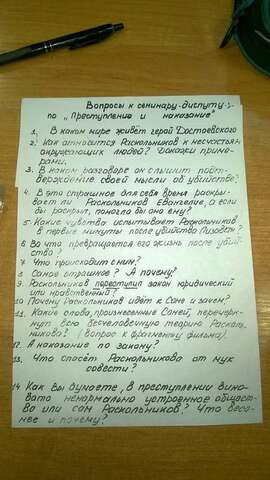 Вопросы к семинару-диспуту :-
по „Преступление и наказание"
1. В каком мире живёт герой Достоевского
2. Как относится Раскольников к несчастьям
окружающих людей? Докажи приме-
рами.
3. В каком разговоре он слышит подт-
верждение своей мысли об убийстве?
4. В это страшное для себя время раскры-
вает ли Раскольников Евангелие, а если
бы раскрыл, помогла бы она ему?
5. Какие чувства испытывает Раскольников
в первые минуты после убийства Лизаветы?
6 Во что превращается его жизнь после убий-
ства?
7 Что происходит с ним?
8 Самое страшное? А почему?
9 Раскольников переступил закон юридический
или нравственный?
10 Почему Раскольников идёт к Соне и зачем?
11. Какие слова, произнесенные Соней, перечёрки-
нут всю бесчеловечную теорию Расколь-
никова? (вопрос к фрагменту фильма)
12. А наказание по закону?
13. Что спасёт Раскольникова от мук
совести?
14 Как вы думаете, в преступлении вино-
вато ненормально устроенное общест-
во или сам Раскольников? Что
и почему?